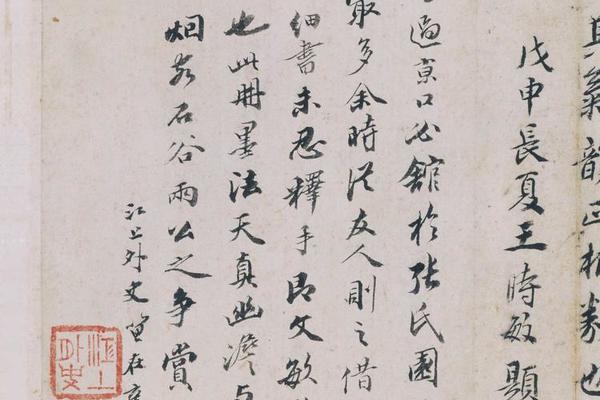 氣韻正相也
戊申長夏王時敏題
過京口必館於張氏園
取多余時從友人則之借
細書未忍釋手即文敏
也此冊墨法天真幽澹与
烟客石谷兩公之爭賞
江上外史笪在辛
江上外史